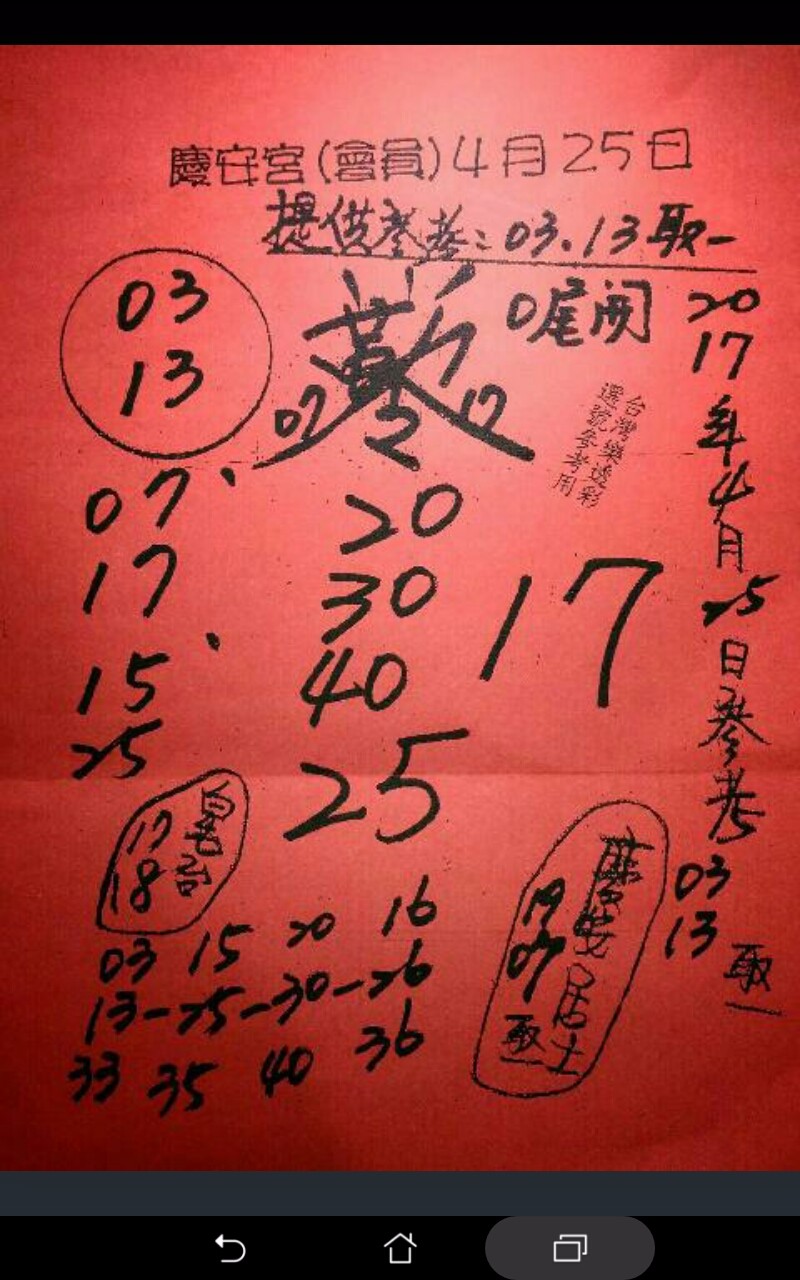 慶安宮(會員)4月25日
提供參考:03.13取一
03
13
0尾開
07
17
台灣樂透彩
選號參考用
2017年4月25日參考
03
13
取一
07、
17
15、
25
20
30
40
25
17
17
18
03 15 20 16
13-25-30-26
33 35 40 36
居士
19
07
取一